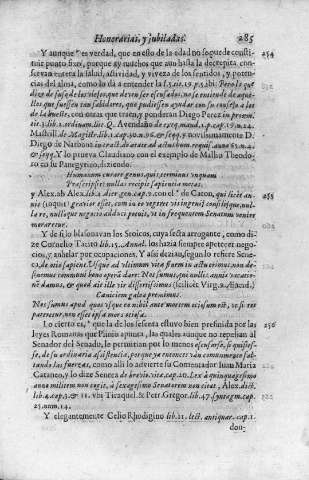 Honorarias, y jubiladas. 285
Y aunque es verdad, que en esto de la edad no se puede consti-
tuir punto fixo, porque ay muchos que aun hasta la decrepita con-
servan entera la salud, actividad, y viveza de los sentidos, y poten-
cias del alma, como lo dà a entender la l. vir. 19. Pero lo que
dize de
los que fuessen tan sabidores, que pudiessen ayudar con su consejo a los
de la hueste, con otras que traen, y ponderan Diego Perez in proœm.
tit. 3. lib. 1. ordinam. Avendaño
Mastrill. de Magistr. lib. 1. cap. 30. n. 96. & seqq. y novissimamente D.
Diego de Narbona in tract. de ætate ad act. human. requis. anno 61. n. 4.
& seqq. Y lo prueva Claudiano con el exemplo de Malho Theodo-
ro en su Panegyrico, diziendo.
Humanum curare genus, quis terminus unquam
Præscripsit? nullas recipit sapientia metas.
y Alex. ab Alex. lib. 2. dier. gen. cap. con el de Caton, qui licèt an-
nis (inquit) gravior esset,
re, nullùsque negotio adduci potuit, ut in frequentem Senatum venire
moraretur.
Y desto blasonavan los Stoicos, cuya secta arrogante, como di-
ze Cornelio Tacito lib. 15. Annal. los hazia siempre apetecer nego-
cios, y anhelar por ocupaciones. Y assi dezian, segun lo refiere Sene-
ca, de otio sapient. Usque ad ultimum vitæ finem in actu erimus, non de-
sinemus communi bono operam dare: Nos sumus, qui nullis annis vacatio-
nem damus, & quod ait ille vir disertissimus (scilicet Virg. 9. Æneid.)
Canitiem galea premimus.
Nos sumus apud quos usque eò nihil ante mortem otiosum est, ut si res
pateretur, non esset ipsa mors otiosa.
Lo cierto es, que la de los sesenta estuvo bien prefinida por las
leyes Romanas que Plinio apunta, las quales aunque no repelian al
Senador del Senado, le permitian por lo menos escusarse, si quisies-
se, de su ordinaria assistencia, porque ya entonces van comunmente fal-
tando las fuerças, como alli lo advierte su Comentador Iuan Maria
Cataneo, y lo dize Seneca de brevit. vitæ, cap. 20. Lex à quinquagesimo
anno militem non cogit, à sexagesimo Senatorem non citat, Alex. dict.
lib. 4. cap. & 11. ubi Tiraquel. & Petr. Gregor. lib. 47. syntagm. cap.
23. num. 14.
Y elegantemente Celio Rhodigino lib. 21. lect. antiquar. cap. 1.
don-
254
255
256